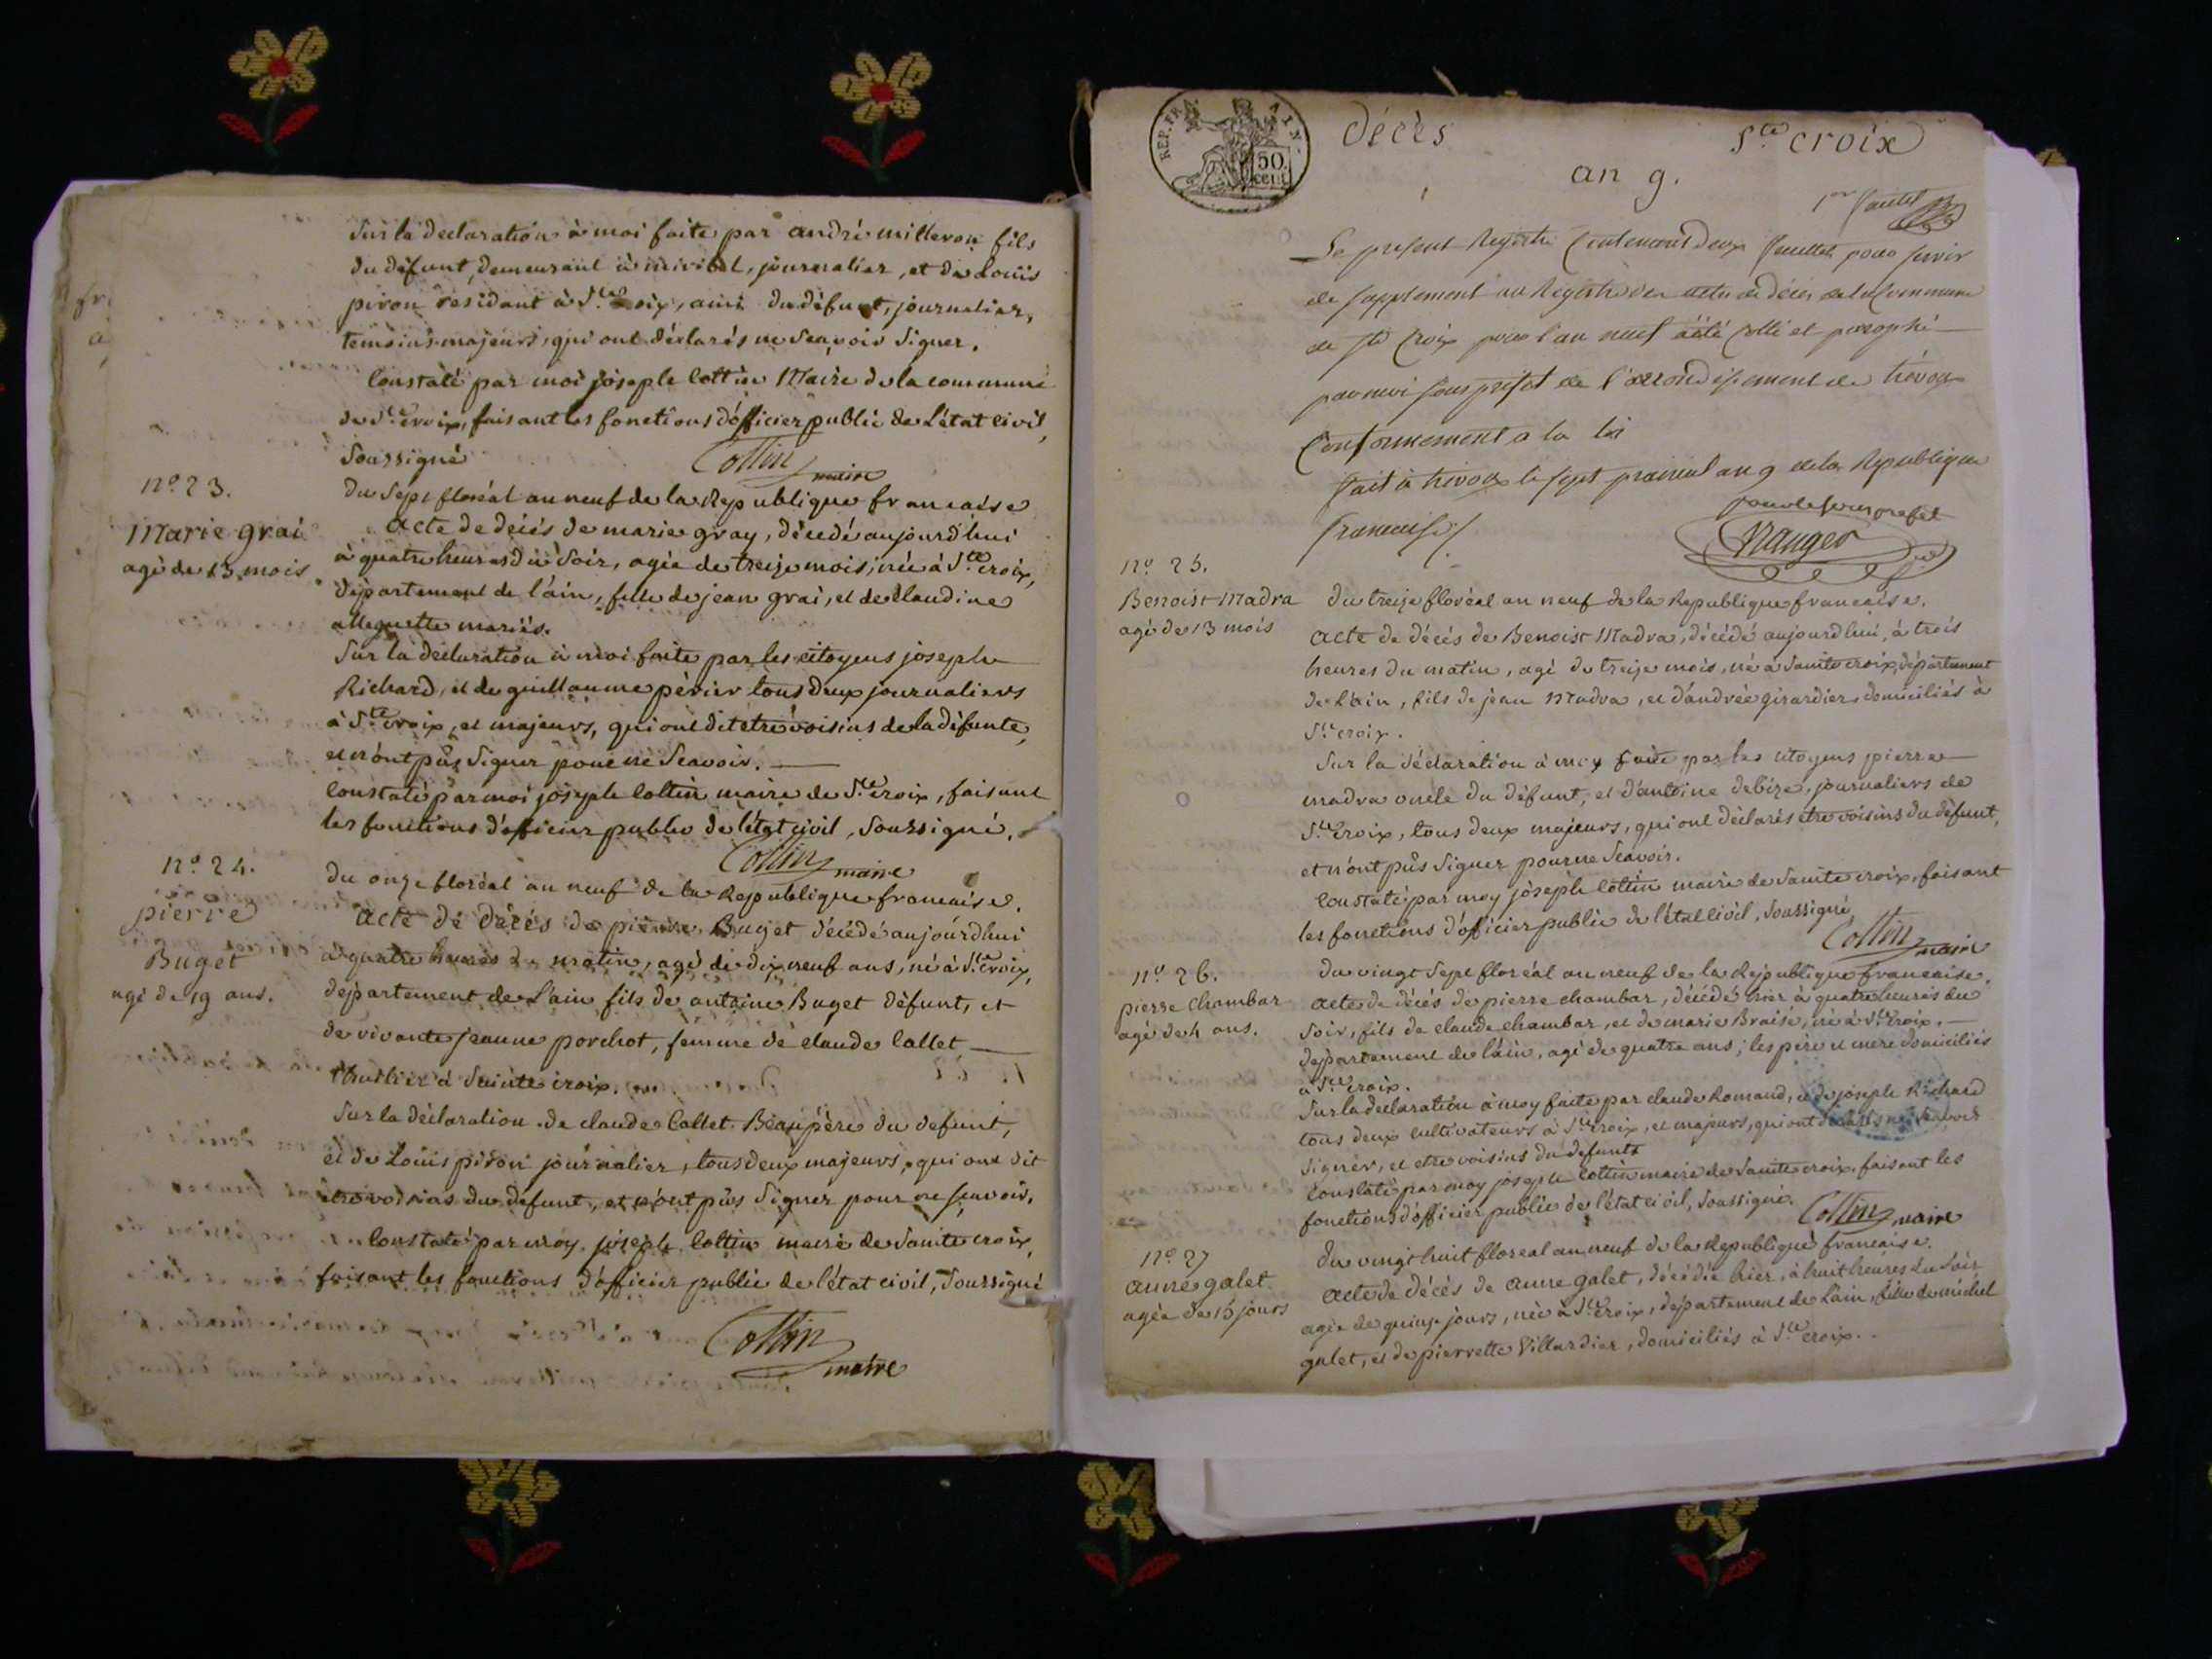 Sur la declaration à moi faite par andré milleron fils
du défunt, demeurant à miribel, journalier, et de Louis
piron residant à Ste Croix, ami du défunt, journalier,
temoins majeurs, qui ont déclarés ne Seavoir Signer.
Constaté par moi joseple Cottin Maire de la commune
de Ste croix, faisant les fonctions d'officier public de L'état civil,
Soussigné
Cottin maire
n.º 23.
Marie grai
agé de 13 mois
Du Sept floréal an neuf de la Republique francaise
acte de décés de marie gray, décédé aujourd'hui
à quatre heures du Soir, agée de treize mois, née à Ste croix,
département de l'ain, fille de jean grai, et de Claudine
mariés.
Sur la déclaration à moi faite par les citoyens joseple
Richard, et de guillaume périer tous deux journaliers
à Ste croix, et majeurs, qui ont dit etre voisins de la défunte,
et n'ont pûs Signer pour ne Seavoir.
Constaté par moi joseple Cottin maire de Ste croix, faisant
les fonctions d'officier public de l'état civil, Soussigné.
Cottin maire
n.º 24.
pierre
Buget
agé de 19 ans.
Du onze floréal an neuf de la Republique francaise.
acte de décés de pierre Buget décédé aujourd'hui
à quatre heures du matin, agé de dix neuf ans, né à Ste croix,
département de L'ain fils de antoine Buget défunt, et
de vivante jeanne porchot, femme de claude Collet
à Sainte croix.
Sur la déclaration de claude Collet Beaupère du defunt,
et de Louis piron journalier, tous deux majeurs, qui ont dit
etre voisins du defunt, et n'ont pûs Signer pour ne Seavoir.
Constaté par moy joseple Cottin maire de Sainte croix,
faisant les fonctions d'officier public de l'état civil, Soussigné
Cottin
maire
REP. FRA AIN.
50
cent
décès
Ste croix
an 9.
1er feuillet
Le present Registre Contenant deux feuillets pour servir
de supplement au Registre des actes de décès de la Commune
de Ste Croix pour l'an neuf a été Cotté et paraphé
par moi sous prefet de l'arrondissement de trévoux
Conformement a la loi
fait à trevoux le sept prairial an 9 de la Republique
francaise
pour le sous prefet
n.º 25.
Benoist Madra
agé de 13 mois
Du treize floréal an neuf de la Republique francaise.
acte de décés de Benoist Madra, décédé aujourd'hui, à trois
heures du matin, agé de treize mois, né à Sainte croix, département
de L'ain, fils de jean Madra, et d'andrée girardier, domiciliés à
Ste croix.
Sur la déclaration à moy faite par les citoyens pierre
madra oncle du défunt, et d'antoine debize, journaliers de
Ste croix, tous deux majeurs, qui ont déclarés etre voisins du défunt,
et n'ont pûs Signer pour ne Seavoir.
Constaté par moy joseple Cottin maire de Sainte croix, faisant
les fonctions d'officier public de l'état civil, Soussigné,
Cottin maire
n.º 26.
pierre Chambar
agé de 4 ans.
Du vingt Sept floréal an neuf de la Republique francaise.
acte de décés de pierre chambar, décédé hier à quatre heures du
Soir, fils de claude chambar, et de marie Braise, né à Ste croix.
departement de l'ain, agé de quatre ans; les pere et mere domiciliés
à Ste croix.
Sur la declaration à moy faite par claude Romand, et de joseple Richard
tous deux cultivateurs à Ste croix, et majeurs, qui ont déclarés ne Seavoir
Signer, et etre voisins du défunt
Constaté par moy joseple Cottin maire de Sainte croix, faisant les
fonctions d'officier public de l'état civil, Soussigné.
Cottin maire
n.º 27
anne galet
agée de 15 jours
Du vingt huit floreal an neuf de la Republique francaise.
acte de décés de anne galet, décédée hier, à huit heures du Soir
agée de quinze jours, née à Ste croix, département de L'ain, fille de michel
galet, et de pierrette Villardier, domiciliés à Ste croix.